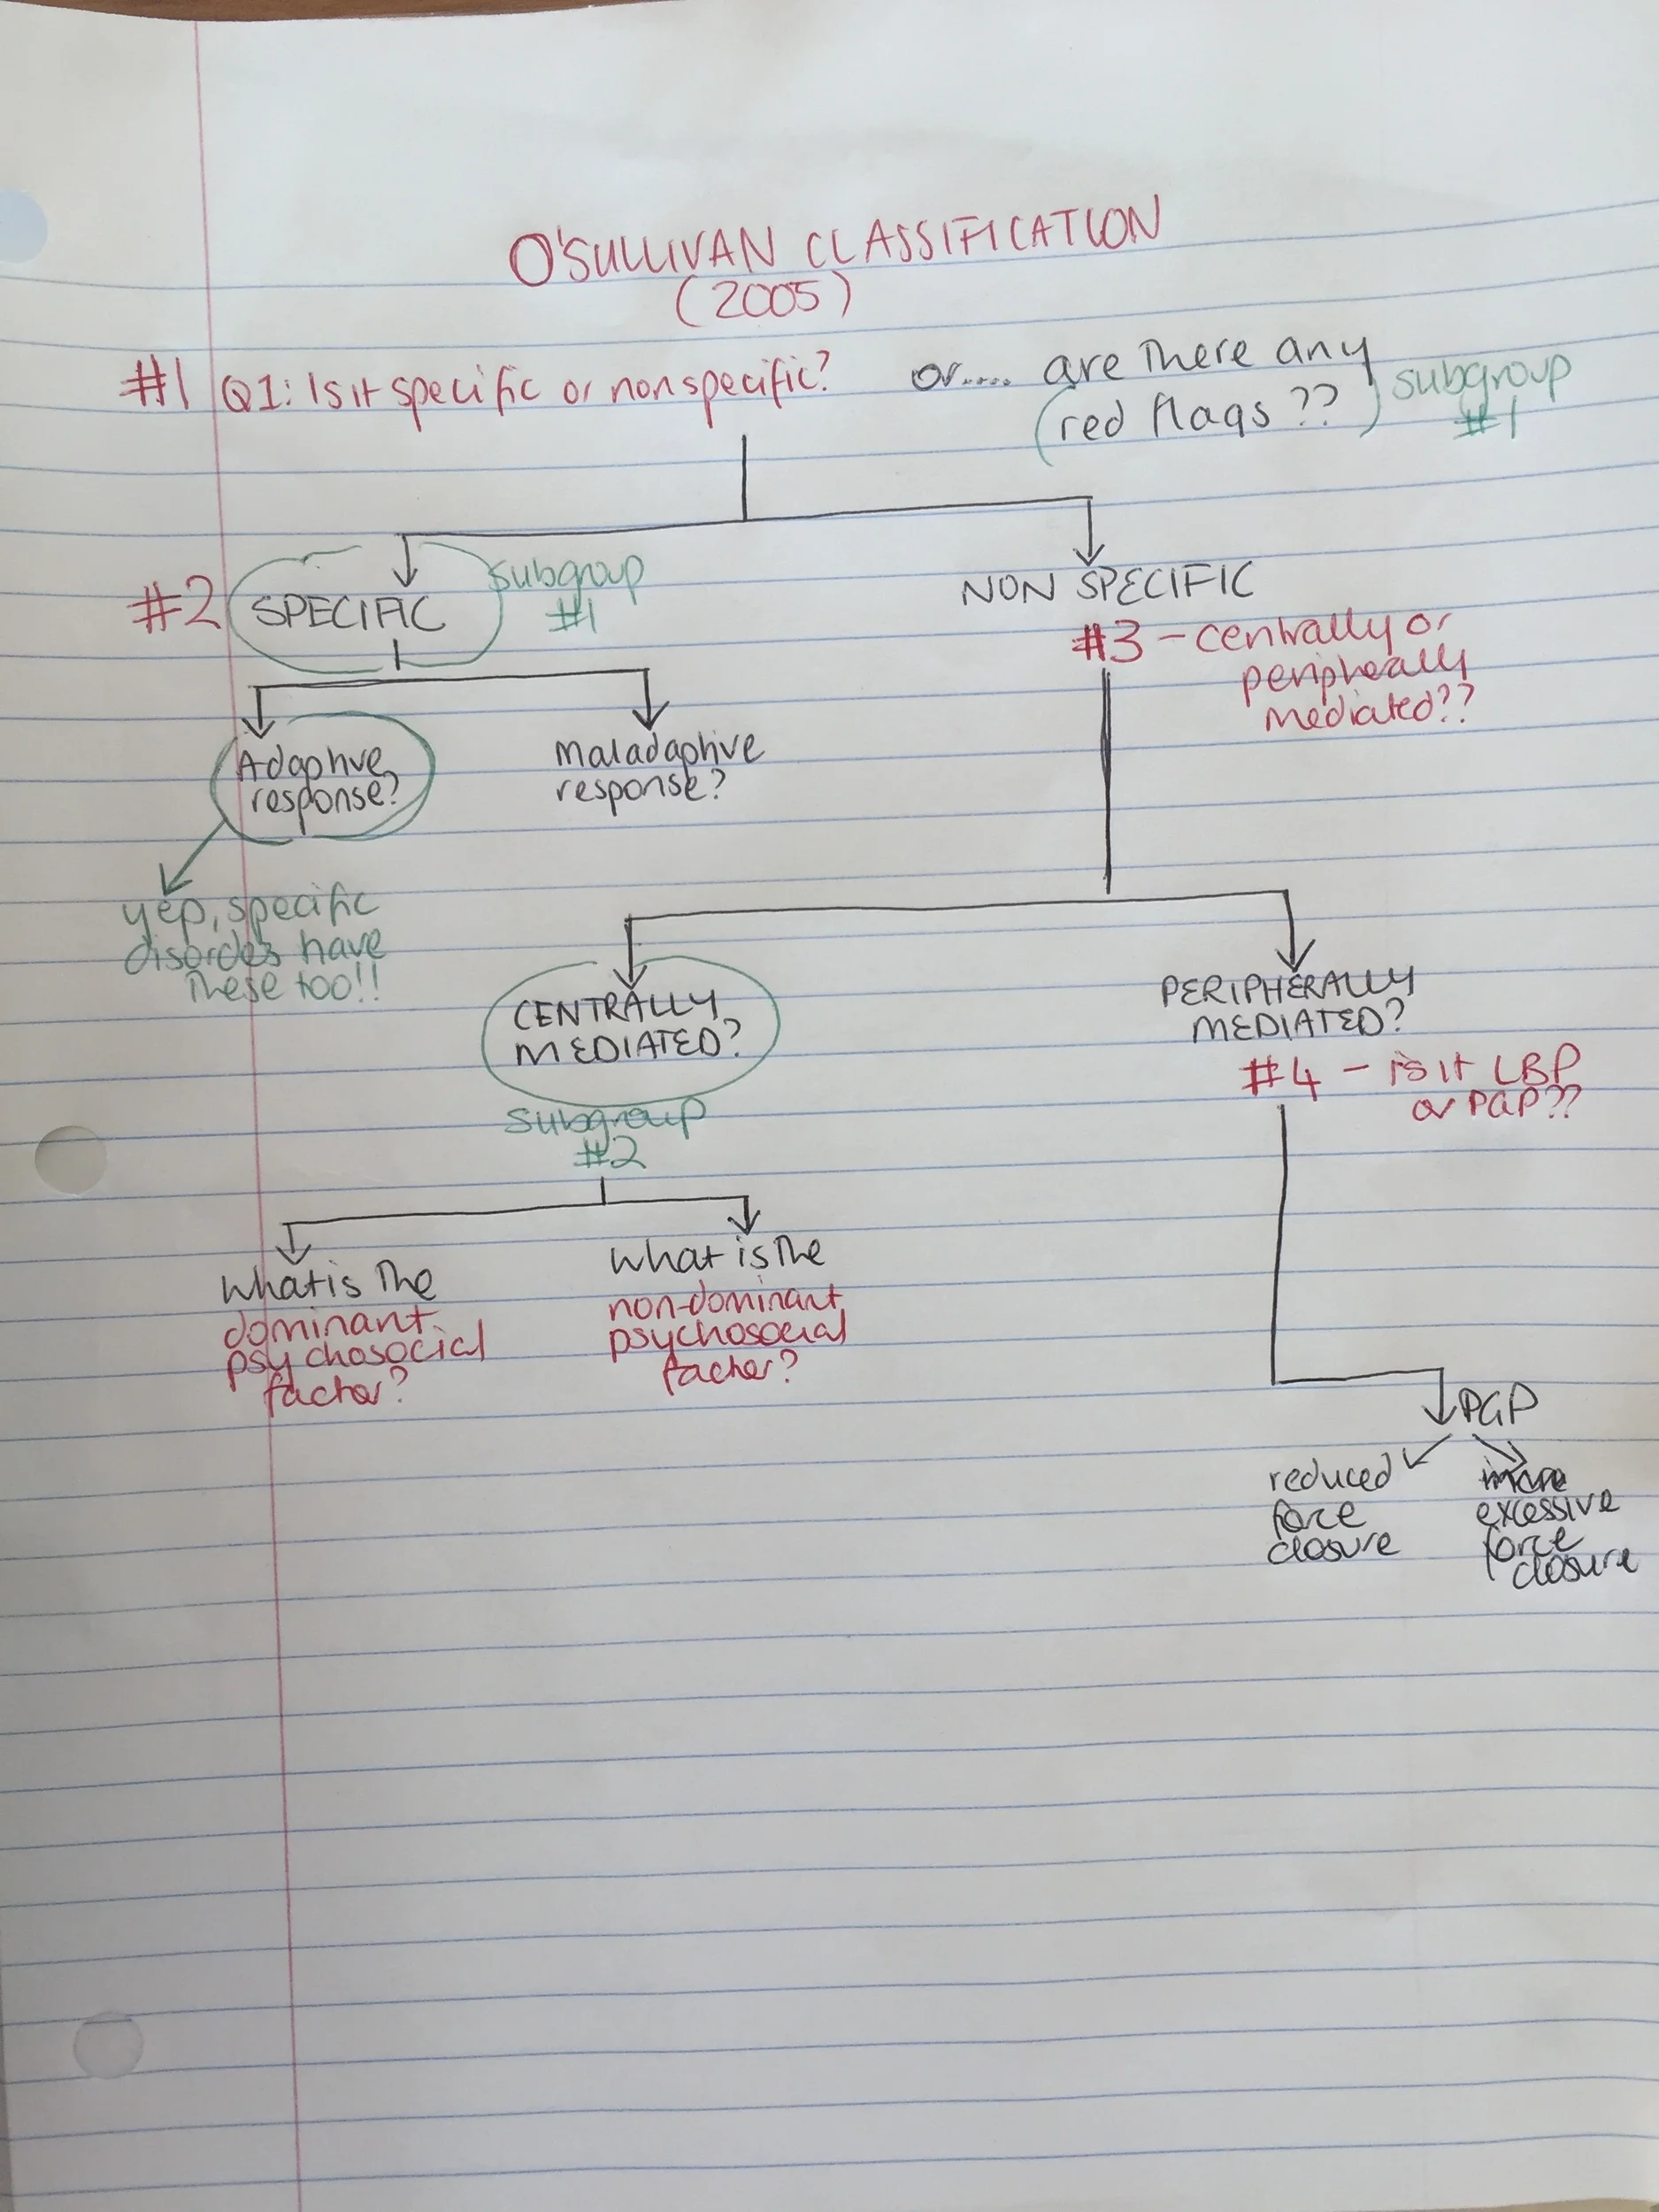 O'SULLIVAN CLASSIFICATION
(2005)
#1 Q1: Is it specific or nonspecific? or.... are there any
(red flags ??) subgroup
#1
#2 SPECIFIC
subgroup
#1
NON SPECIFIC
#3 - centrally or
peripherally
mediated??
Adaptive
response?
Maladaptive
response?
yep, specific
disorders have
these too!!
CENTRALLY
MEDIATED?
subgroup
#2
PERIPHERALLY
MEDIATED?
#4 - is it LBP
or PGP??
What is the
dominant
psychosocial
factor?
What is the
non-dominant
psychosocial
factor?
PGP
reduced
force
closure
excessive
force
closure